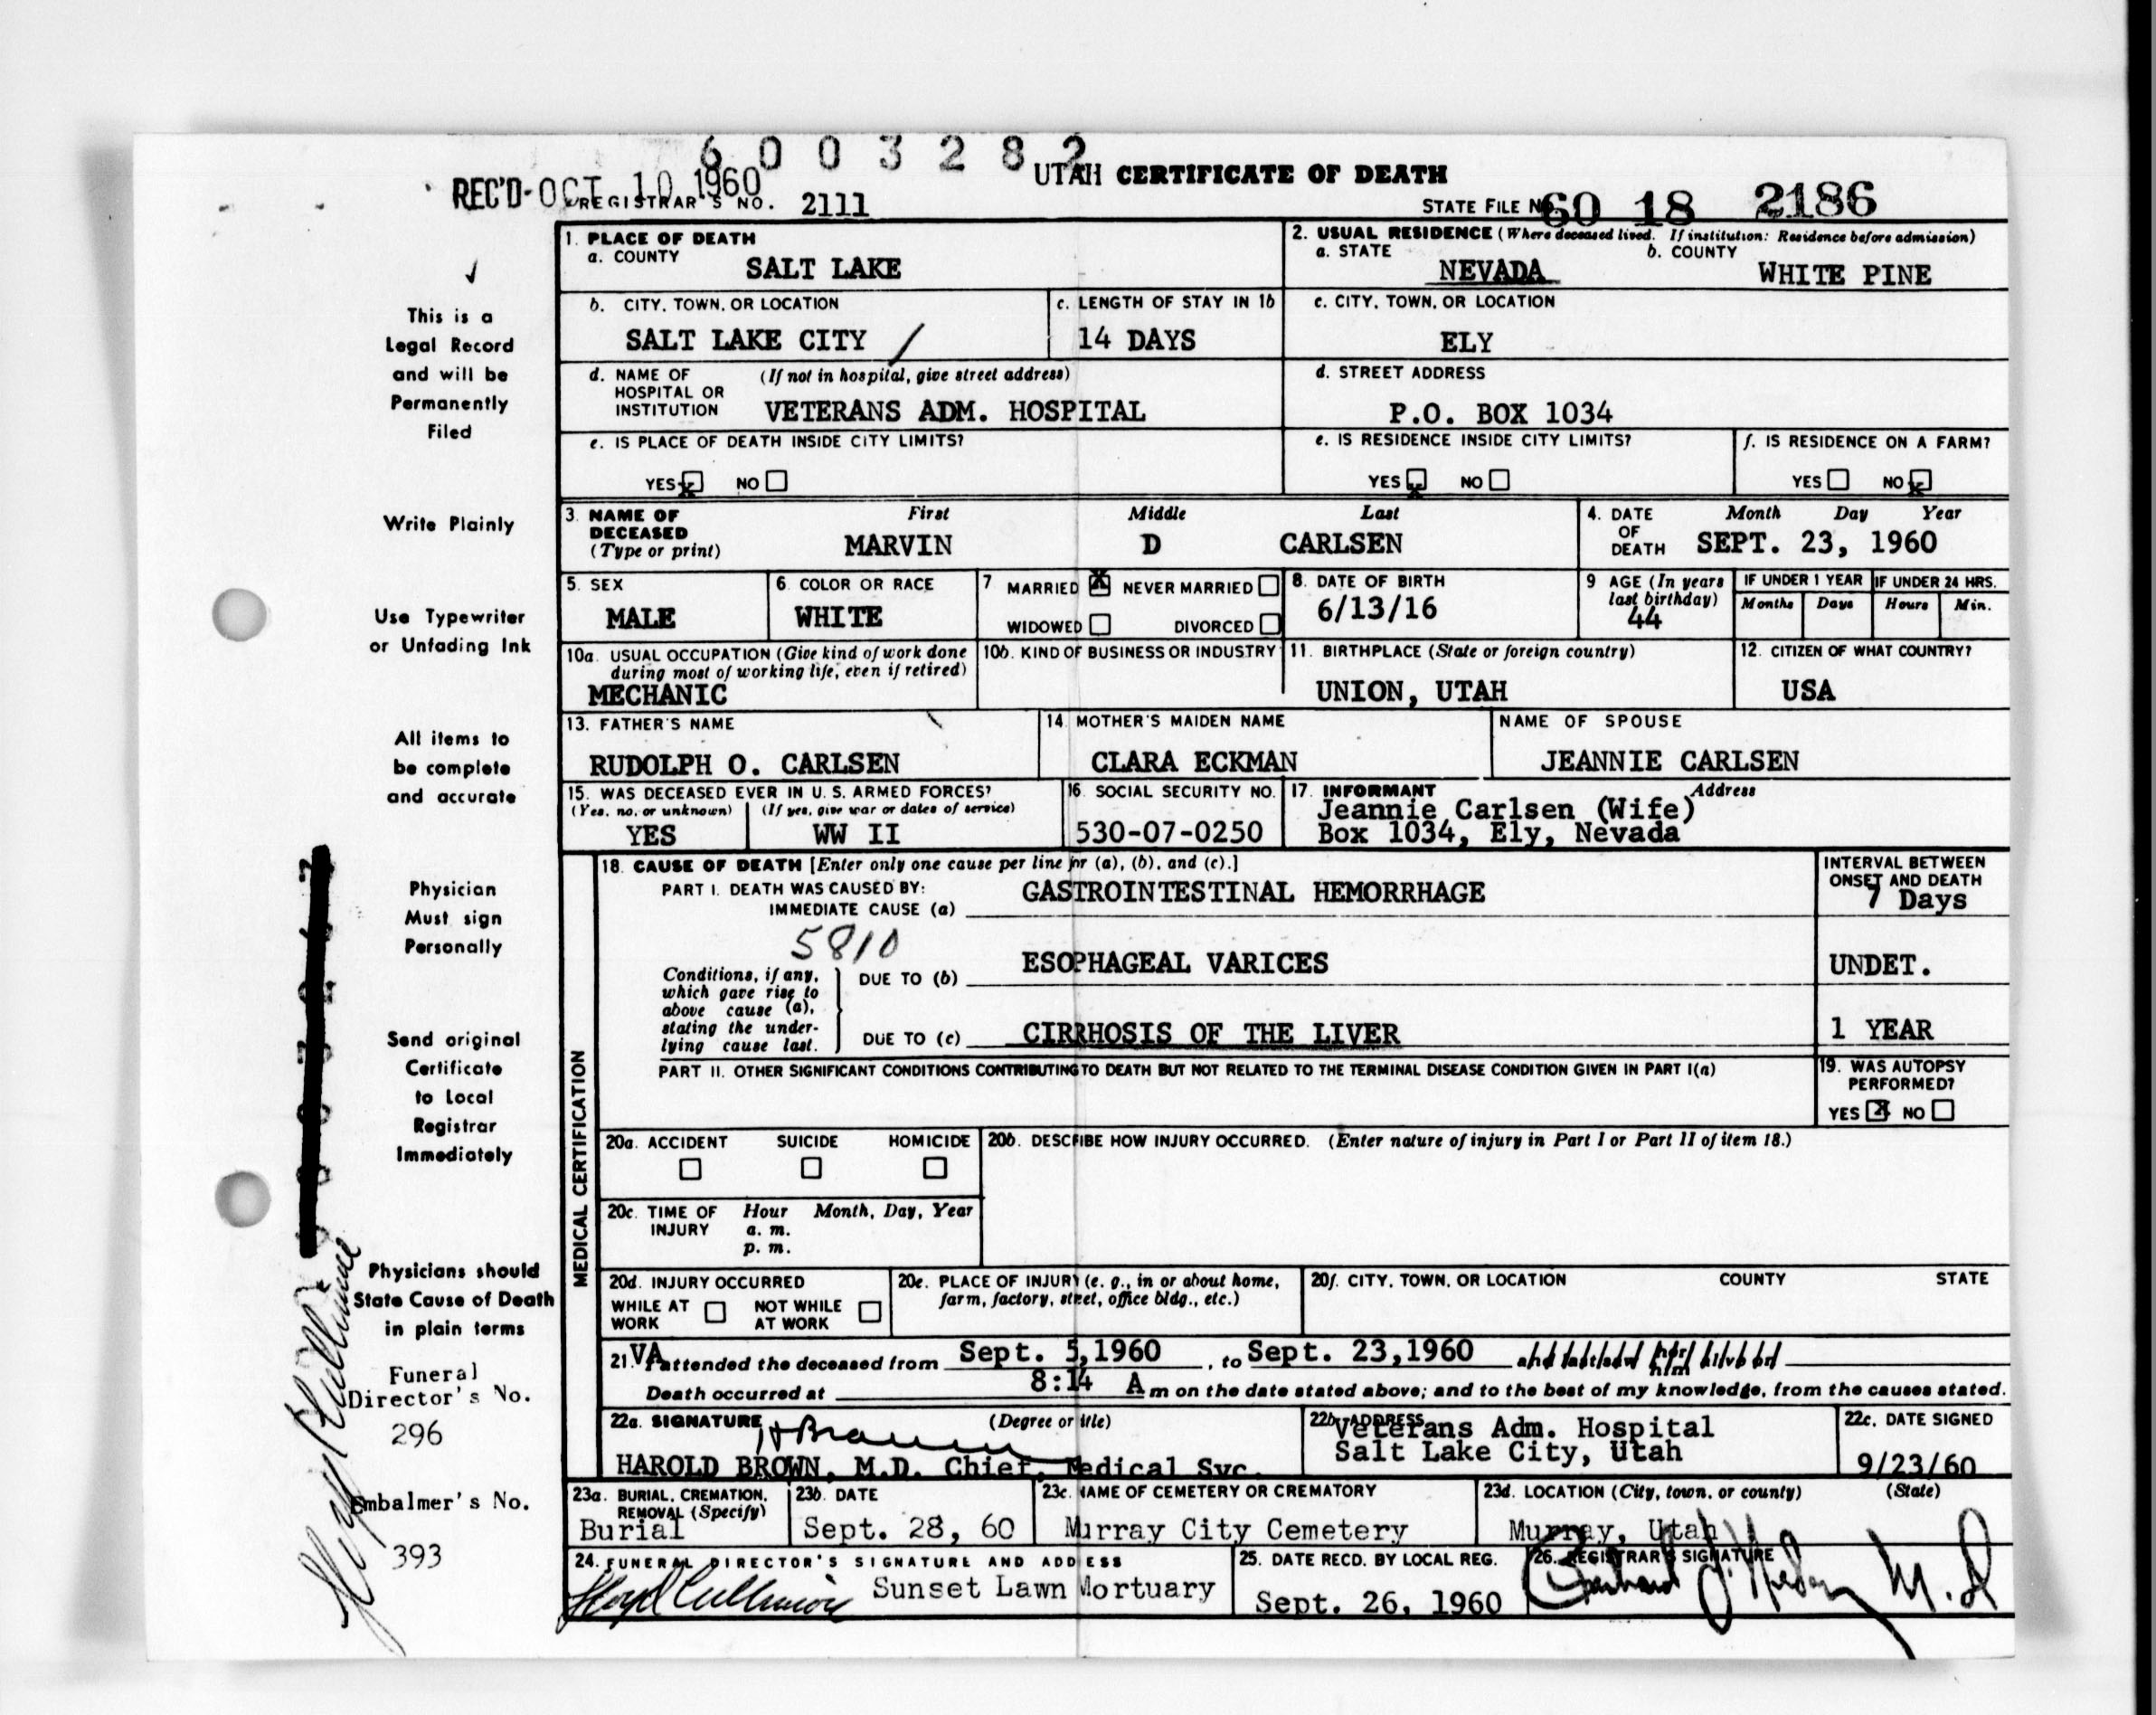 6003282
REC'D-OCT 10 1960
UTAH CERTIFICATE OF DEATH
REGISTRAR'S NO. 2111
STATE FILE NO. 60 18 2186
1. PLACE OF DEATH
a. COUNTY
SALT LAKE
2. USUAL RESIDENCE (Where deceased lived. If institution: Residence before admission)
a. STATE
NEVADA
b. COUNTY
WHITE PINE
b. CITY, TOWN, OR LOCATION
SALT LAKE CITY /
c. LENGTH OF STAY IN 1b
14 DAYS
c. CITY, TOWN, OR LOCATION
ELY
d. NAME OF HOSPITAL OR INSTITUTION
(If not in hospital, give street address)
VETERANS ADM. HOSPITAL
d. STREET ADDRESS
P.O. BOX 1034
e. IS PLACE OF DEATH INSIDE CITY LIMITS?
YES X NO
e. IS RESIDENCE INSIDE CITY LIMITS?
YES X NO
f. IS RESIDENCE ON A FARM?
YES NO X
3. NAME OF DECEASED
(Type or print)
First
MARVIN
Middle
D
Last
CARLSEN
4. DATE OF DEATH
Month Day Year
SEPT. 23, 1960
5. SEX
MALE
6. COLOR OR RACE
WHITE
7 MARRIED X NEVER MARRIED
WIDOWED DIVORCED
8. DATE OF BIRTH
6/13/16
9 AGE (In years last birthday)
44
IF UNDER 1 YEAR
Months Days
IF UNDER 24 HRS.
Hours Min.
10a. USUAL OCCUPATION (Give kind of work done during most of working life, even if retired)
MECHANIC
10b. KIND OF BUSINESS OR INDUSTRY
11. BIRTHPLACE (State or foreign country)
UNION, UTAH
12. CITIZEN OF WHAT COUNTRY?
USA
13. FATHER'S NAME
RUDOLPH O. CARLSEN
14. MOTHER'S MAIDEN NAME
CLARA ECKMAN
NAME OF SPOUSE
JEANNIE CARLSEN
15. WAS DECEASED EVER IN U. S. ARMED FORCES?
(Yes, no, or unknown) (If yes, give war or dates of service)
YES WW II
16. SOCIAL SECURITY NO.
530-07-0250
17. INFORMANT Address
Jeannie Carlsen (Wife)
Box 1034, Ely, Nevada
MEDICAL CERTIFICATION
18. CAUSE OF DEATH [Enter only one cause per line for (a), (b), and (c).]
PART I. DEATH WAS CAUSED BY:
IMMEDIATE CAUSE (a) GASTROINTESTINAL HEMORRHAGE
INTERVAL BETWEEN ONSET AND DEATH
7 Days
5810
Conditions, if any, which gave rise to above cause (a), stating the underlying cause last.
DUE TO (b) ESOPHAGEAL VARICES
UNDET.
DUE TO (c) CIRRHOSIS OF THE LIVER
1 YEAR
PART II. OTHER SIGNIFICANT CONDITIONS CONTRIBUTING TO DEATH BUT NOT RELATED TO THE TERMINAL DISEASE CONDITION GIVEN IN PART I(a)
19. WAS AUTOPSY PERFORMED?
YES X NO
20a. ACCIDENT SUICIDE HOMICIDE
20b. DESCRIBE HOW INJURY OCCURRED. (Enter nature of injury in Part I or Part II of item 18.)
20c. TIME OF INJURY
Hour Month, Day, Year
a. m.
p. m.
20d. INJURY OCCURRED
WHILE AT WORK NOT WHILE AT WORK
20e. PLACE OF INJURY (e. g., in or about home, farm, factory, street, office bldg., etc.)
20f. CITY, TOWN, OR LOCATION COUNTY STATE
21. VA attended the deceased from Sept. 5,1960, to Sept. 23,1960 and last saw her/him alive on
Death occurred at 8:14 A m on the date stated above; and to the best of my knowledge, from the causes stated.
22a. SIGNATURE (Degree or title)
H Brown
HAROLD BROWN, M.D. Chief, Medical Svc.
22b. ADDRESS
Veterans Adm. Hospital
Salt Lake City, Utah
22c. DATE SIGNED
9/23/60
23a. BURIAL, CREMATION, REMOVAL (Specify)
Burial
23b. DATE
Sept. 28, 60
23c. NAME OF CEMETERY OR CREMATORY
Murray City Cemetery
23d. LOCATION (City, town, or county) (State)
Murray, Utah
24. FUNERAL DIRECTOR'S SIGNATURE AND ADDRESS
Lloyd Cullimore Sunset Lawn Mortuary
25. DATE RECD. BY LOCAL REG.
Sept. 26, 1960
26. REGISTRAR'S SIGNATURE
M.D
This is a
Legal Record
and will be
Permanently
Filed
Write Plainly
Use Typewriter
or Unfading Ink
All items to
be complete
and accurate
Physician
Must sign
Personally
Send original
Certificate
to Local
Registrar
Immediately
Physicians should
State Cause of Death
in plain terms
Funeral
Director's No.
296
Embalmer's No.
393
Lloyd Cullimore